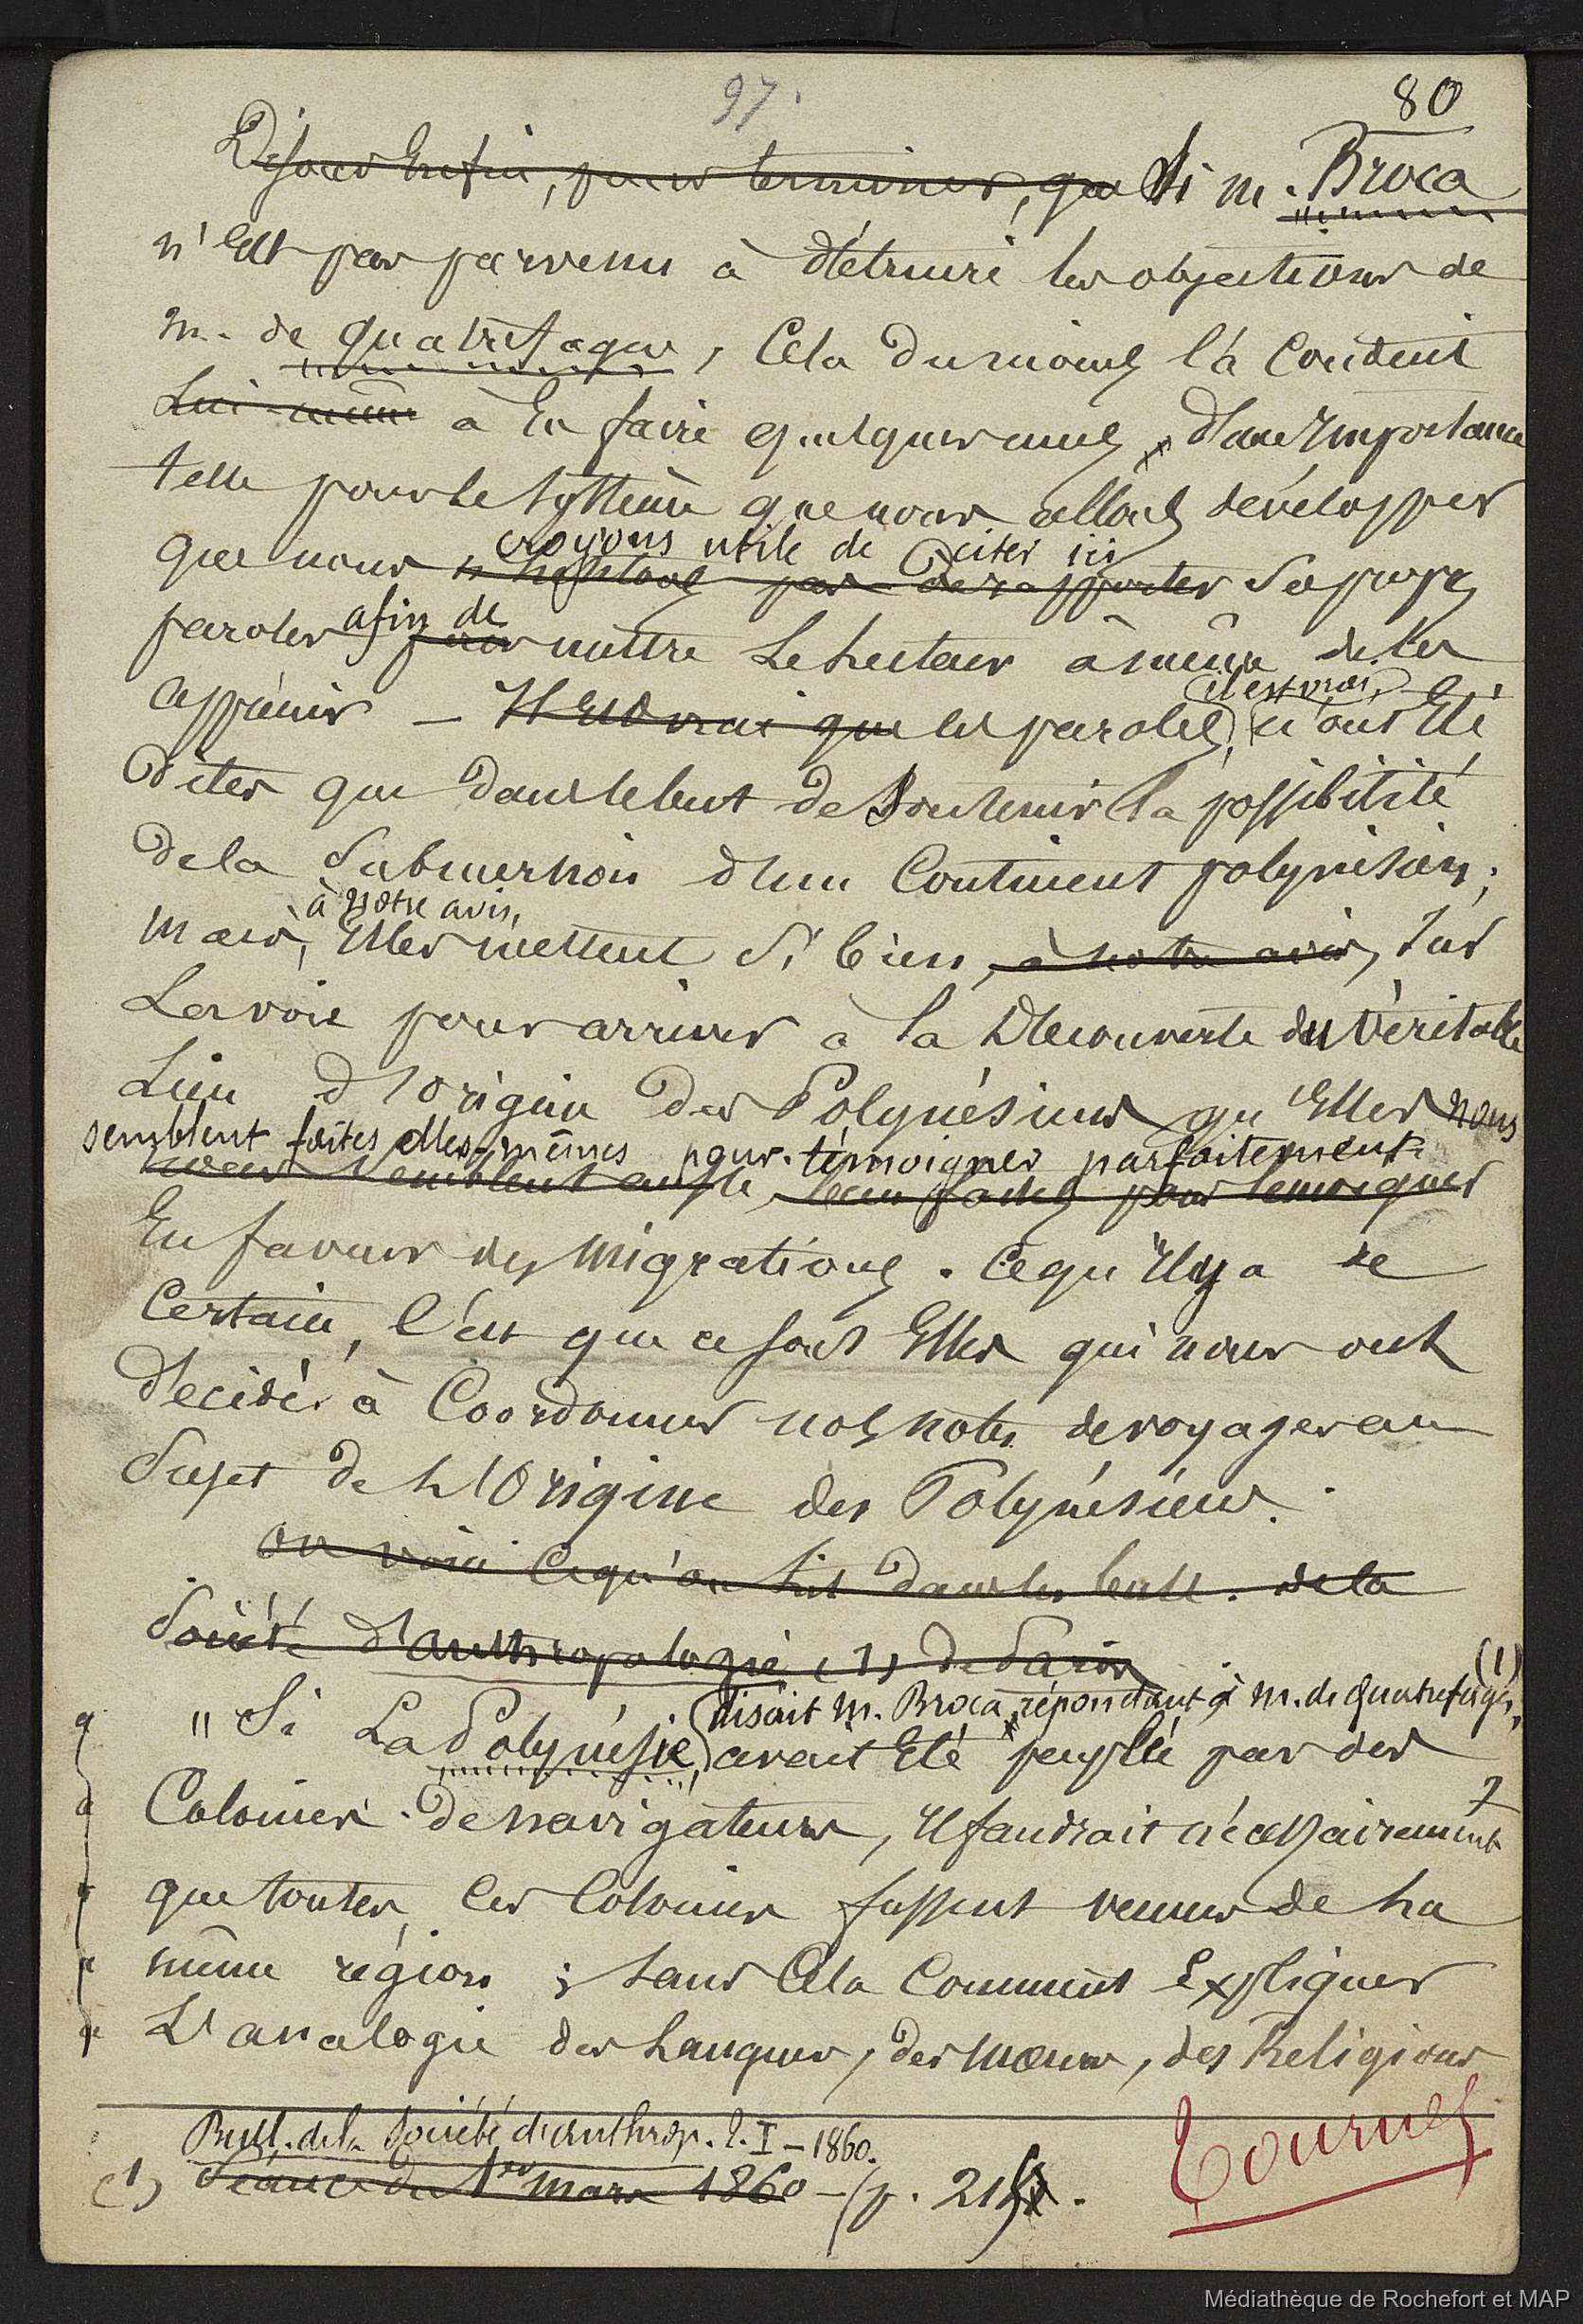 97.
80
Disons Enfin, pour terminer, que Si M. Broca
n'Est pas parvenu à détruire les objections de
M. de Quatrefages, Cela du moins l'a Conduit
Lui-même à En faire quelques unes d'une Importance
telle pour le Système que nous allons développer
croyons utile de citer ici
que nous n'hésitons pas de rapporter Ses propres
afin de
paroles pour mettre Le Lecteur à même de les
il est vrai,
apprécier — Il Est vrai que les paroles, n'ont Eté
Dites que dans le but de Soutenir la possibilité
de la Submersion d'un Continent polynésien ;
à notre avis,
mais, Elles mettent Si bien, à notre avis, Sur
La voie pour arriver à la Découverte du véritable
Lieu d'Origine des Polynésiens qu'Elles nous
semblent faites elles-mêmes pour témoigner parfaitement
nous Semblent aussi bien faites pour témoigner
En faveur des Migrations. Ce qu'Il y a de
Certain, C'est que ce sont Elles qui nous ont
décidé à Coordonner nos notes de voyages au
Sujet de L'Origine des Polynésiens.
or voici Ce qu'on Lit dans les bull. de la
Société d'anthropologie (1) de Paris
disait M. Broca, répondant à M. de Quatrefages, (1)
" Si La Polynésie avait Eté peuplée par des
Colonies de navigateurs, Il faudrait nécessairement
que toutes Ces Colonies fussent venues de La
même région ; Sans Cela Comment Expliquer
L'analogie des Langues, des Mœurs, des Religions
Bull. de la Société d'anthrop. t. I – 1860.
(1) Séance du 1er Mars 1860 – (p. 21
Tournez
Médiathèque de Rochefort et MAP